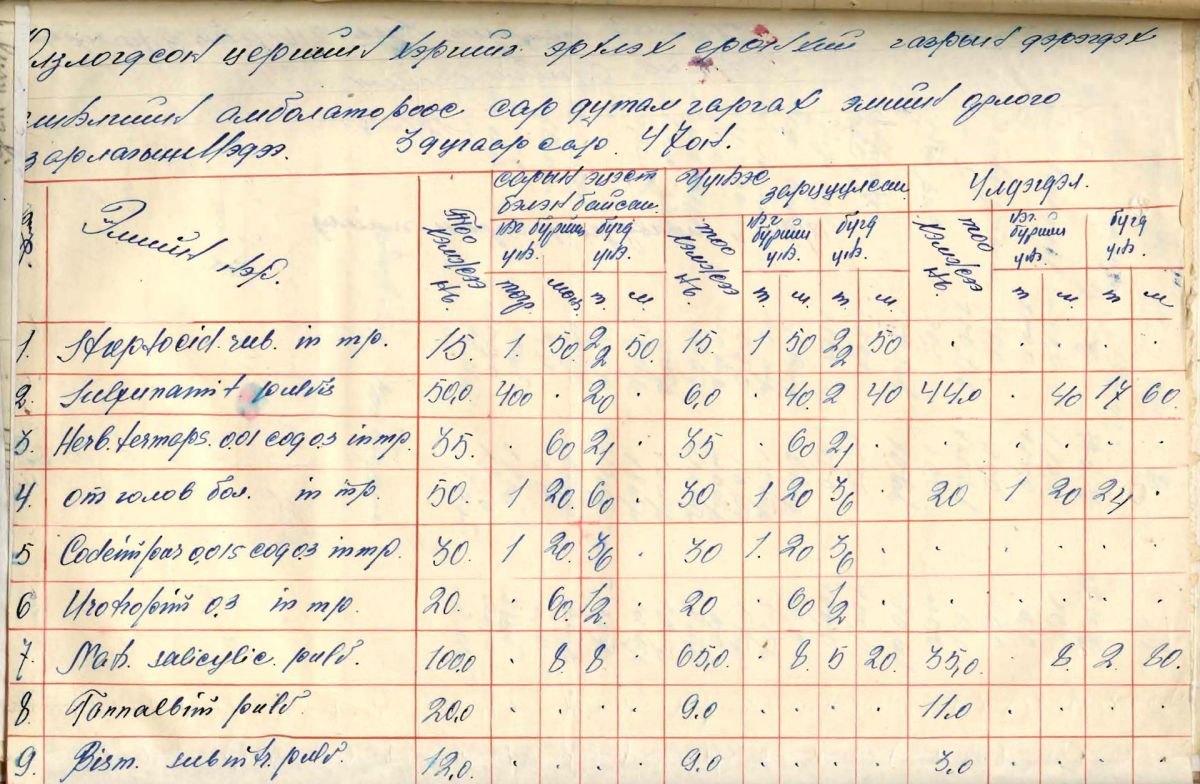 Олзлогдсон цэргийн хэргийг эрхлэх ерөнхий газрын дэргэдэх
амболатороос сар дутам гаргах эмийн орлого
зарлагын мэдээ. 3 дугаар сар 47 он.
Эмийн нэр. Тоо хэмжээ нь. сарын эцэст бэлэн байсан. Үүнээс зарцуулсан Үлдэгдэл.
нэг бүрийн үнэ бүгд үнэ тоо хэмжээ нь. нэг бүрийн үнэ бүгд үнэ тоо хэмжээ нь. нэг бүрийн үнэ бүгд үнэ
төгр. мөнг. т. м т. м. т. м т м. т м
1. Streptocid. rub. in тр. 15. 1. 50 22 50. 15. 1 50 22 50 . . . . .
2. pulvis 50,0 400 . 20 . 6,0 . 40. 2 40 44.0 . 40 17 60.
3. Herb. termops. 0.01 cog 0.3 in тр. 35. . 60 21 . 35 . 60 21 . . . . . .
4. от голов бол. in тр. 50. 1 20. 60 . 30 1 20 36 . 20 1 20 24 .
5 Codeini pur 0,015 cog 0.3 in тр. 30. 1 20. 36 . 30 1. 20 36 . . . . . .
6 Urotropini 0,3 in тр. 20. . 60. 12. . 20 . 60 12 . . . . . .
7. Nat. salicylic. pulv. 100,0 . 8. 8. . 65,0. . 8. 5 20. 35,0. . 8. 2. 80.
8. Tannalbini pulv. 20,0 . . . . 9.0 . . . . 11.0 . . . .
9. Bism. subnitr. pulv. 12,0. . . . . 9.0 . . . . 3,0 . . . .